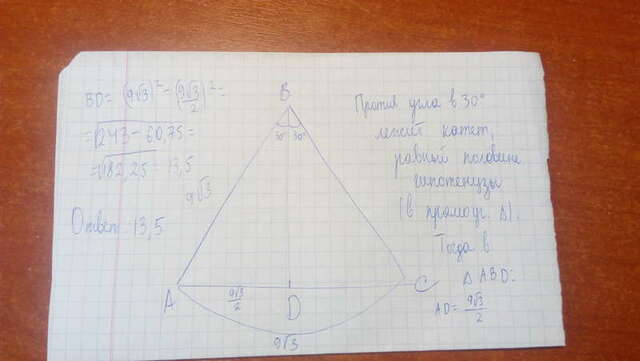 BD = (9√3)² - (9√3/2)² =
= √243 - 60,75 =
= √182,25 13,5
Ответ 13,5
B
30° 30°
9√3
A
9√3/2
D
C
9√3
Против угла в 30°
лежит катет,
равный половине
гипотенузы
(в прямоуг. Δ).
Тогда в
Δ ABD:
AD = 9√3/2